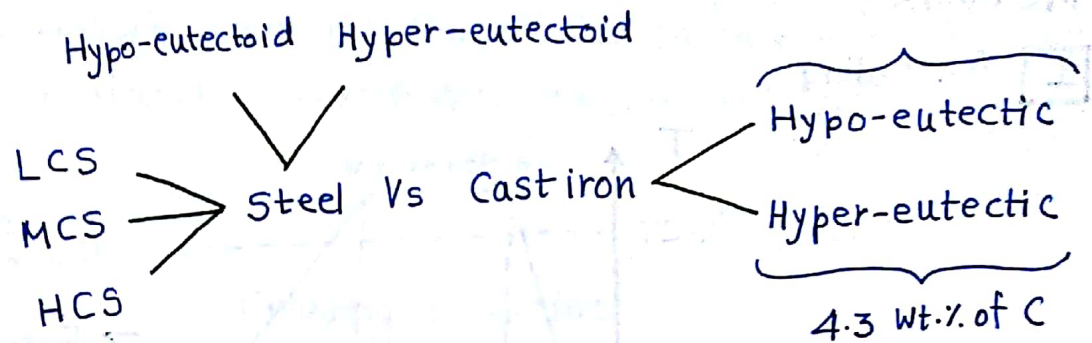 Hypo-eutectoid Hyper-eutectoid
LCS
MCS
HCS
Steel Vs Cast iron
Hypo-eutectic
Hyper-eutectic
4.3 Wt.% of C